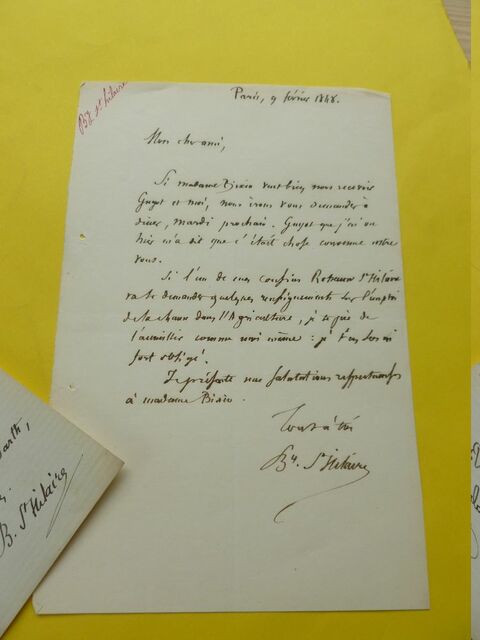 Bz St hilaire
Paris, 9 février 1848.
Mon cher ami,
Si madame Bixio veut bien nous recevoir
Guyot et moi, nous irons vous demander à
diner, mardi prochain. Guyot que j'ai vu
hier m'a dit que c'était chose convenue entre
vous.
Si l'un de mes cousins St hilaire
va te demander quelques renseignements sur l'emploi
de la chaux dans l'Agriculture, je te prie de
l'accueillir comme moi même : je t'en serai
fort obligé.
Je présente mes salutations respectueuses
à madame Bixio.
Tout à toi
By. St Hilaire
B. St Hilaire